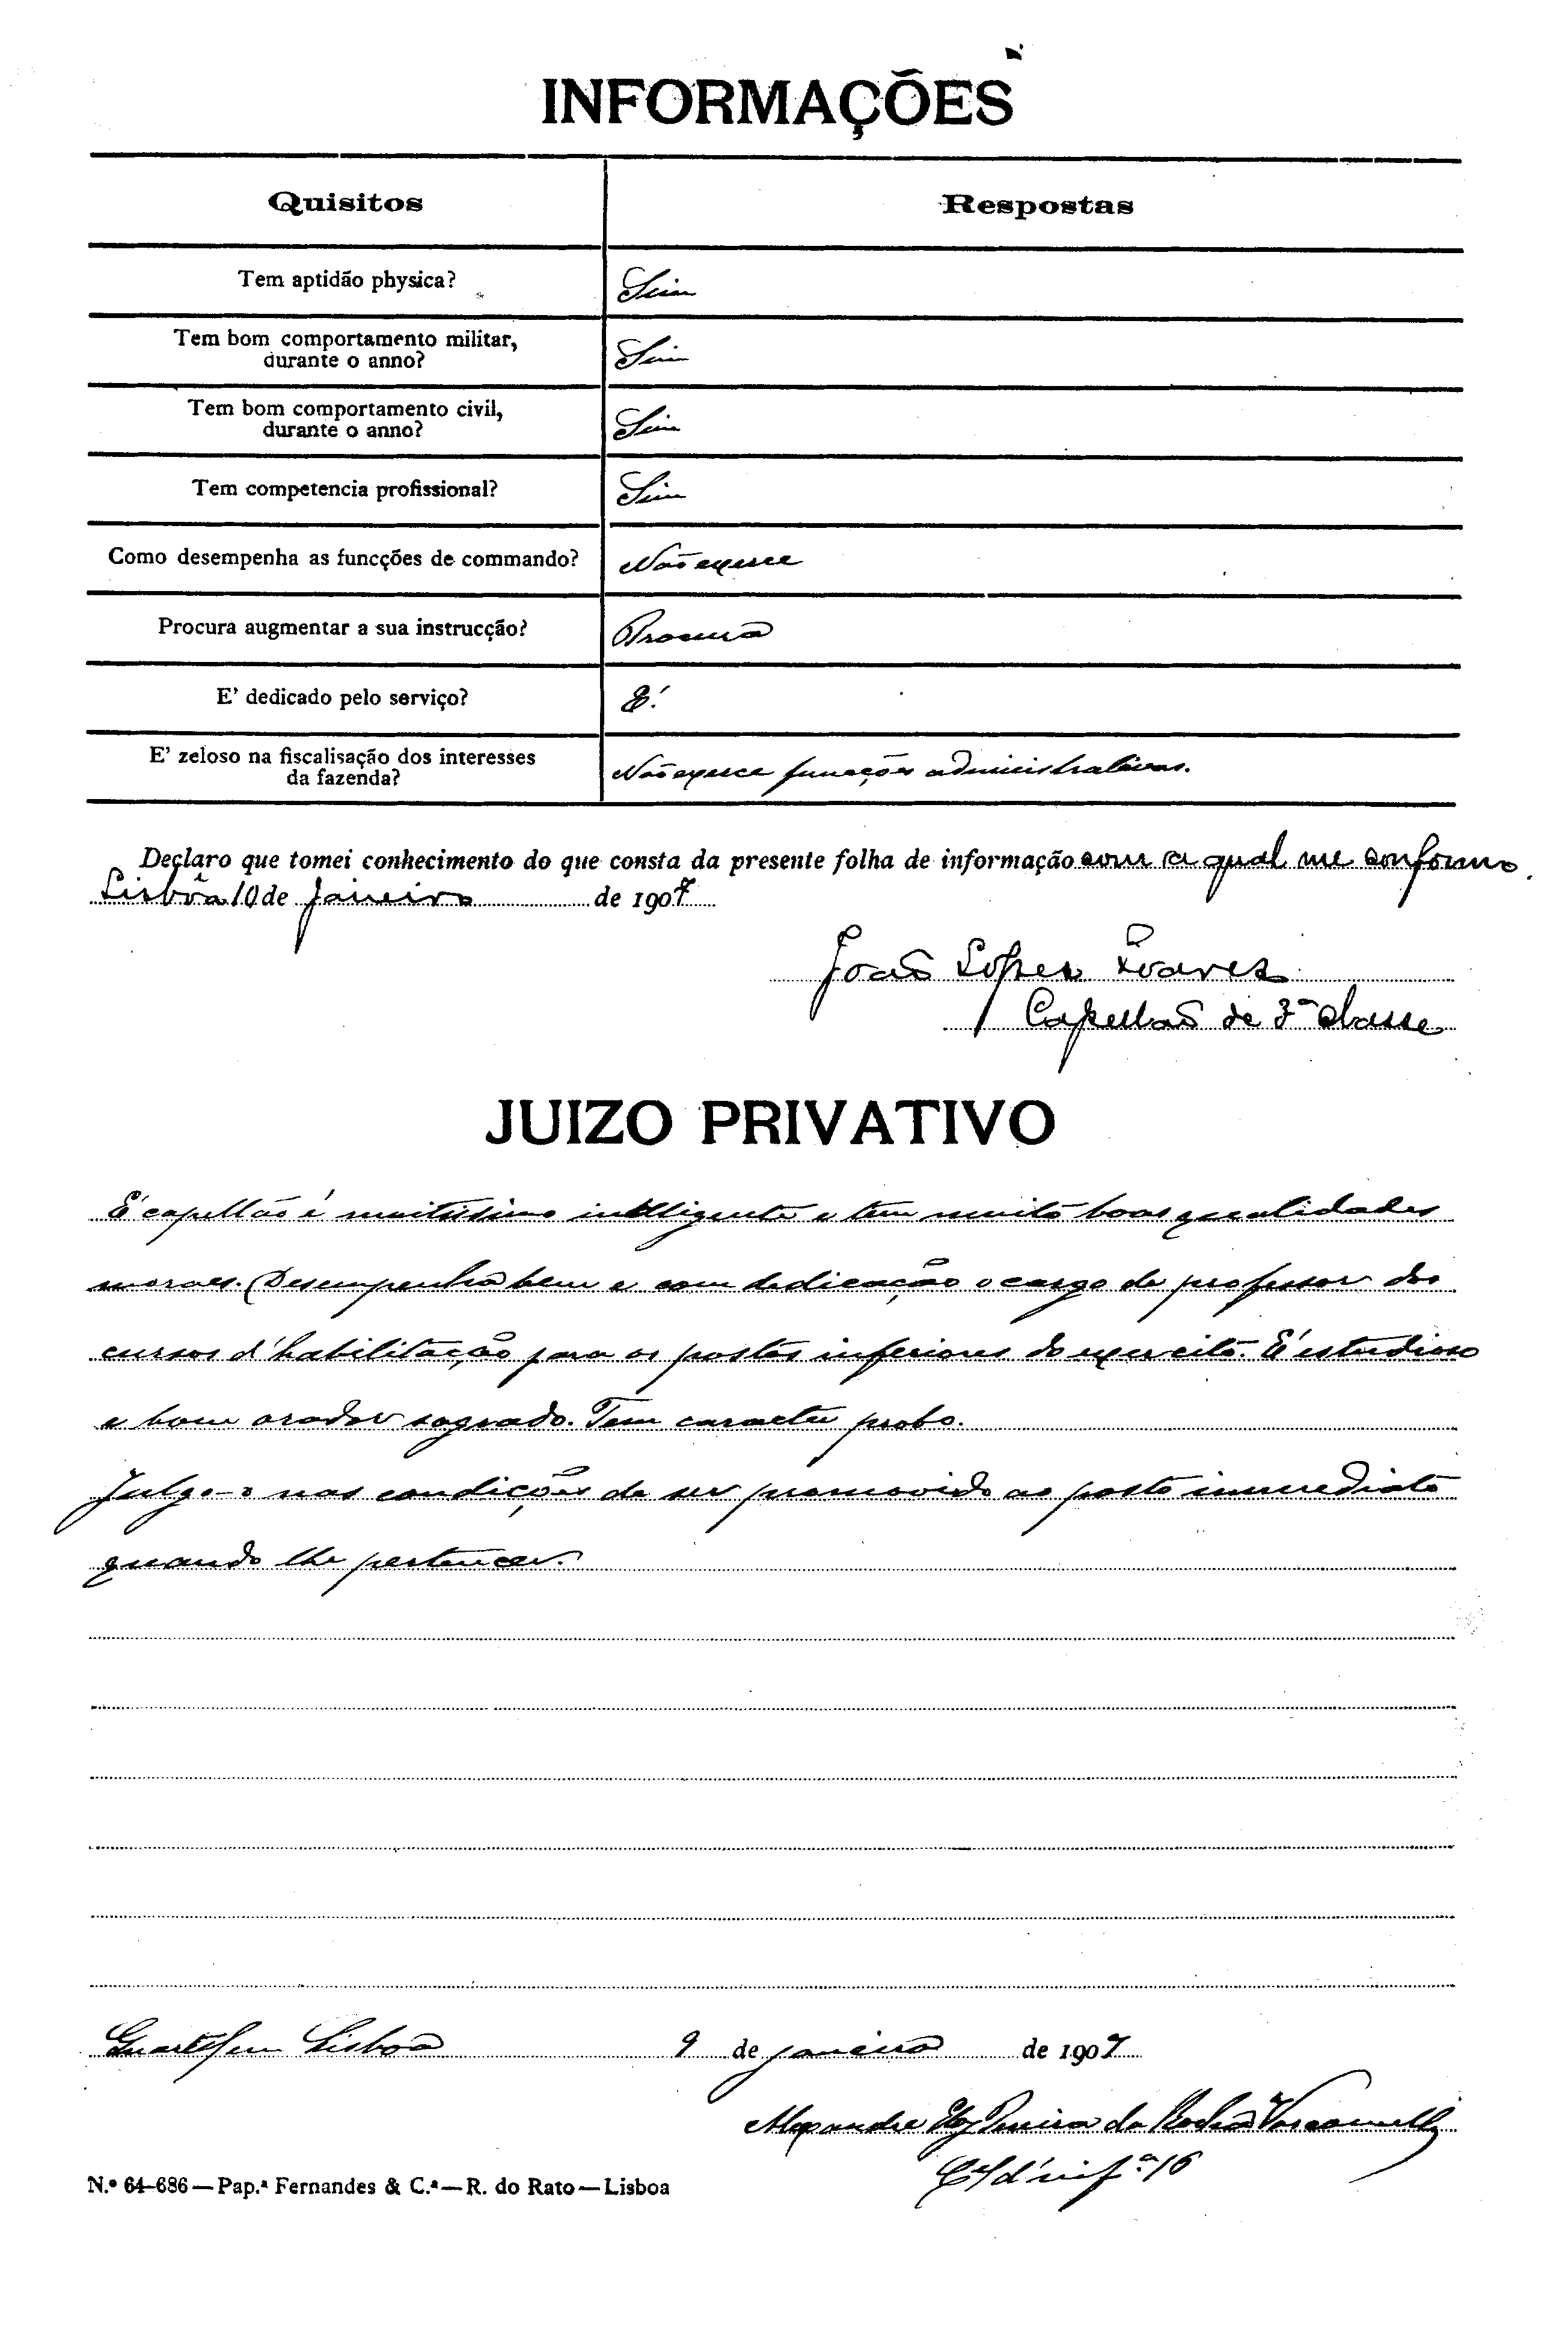 INFORMAÇÕES
Quisitos
Respostas
Tem aptidão physica?
Sim
Tem bom comportamento militar,
durante o anno?
Sim
Tem bom comportamento civil,
durante o anno?
Sim
Tem competencia profissional?
Sim
Como desempenha as funcções de commando?
Não exerce
Procura augmentar a sua instrucção?
Procura
E' dedicado pelo serviço?
É.
E' zeloso na fiscalisação dos interesses
da fazenda?
Não exerce funcções administrativas.
Declaro que tomei conhecimento do que consta da presente folha de informação com a qual me conformo.
Lisbôa 10 de Janeiro de 1907
João Lopes Soares
Capellão de 3ª classe
JUIZO PRIVATIVO
É capellão é muitissimo intelligente e tem muito boas qualidades
moraes. Desempenha bem e com dedicação o cargo de professor dos
cursos d'habilitação para os postos inferiores do exercito. É estudioso
e bom orador sagrado. Tem caracter probo.
Julgo-o nas condições de ser promovido ao posto immediato
quando lhe pertencer.
Quartel em Lisboa 9 de janeiro de 1907
Alexandre Pereira da Rocha Vasconcellos
Cel d'infª 16
N.º 64-686—Pap.ª Fernandes & C.ª—R. do Rato—Lisboa